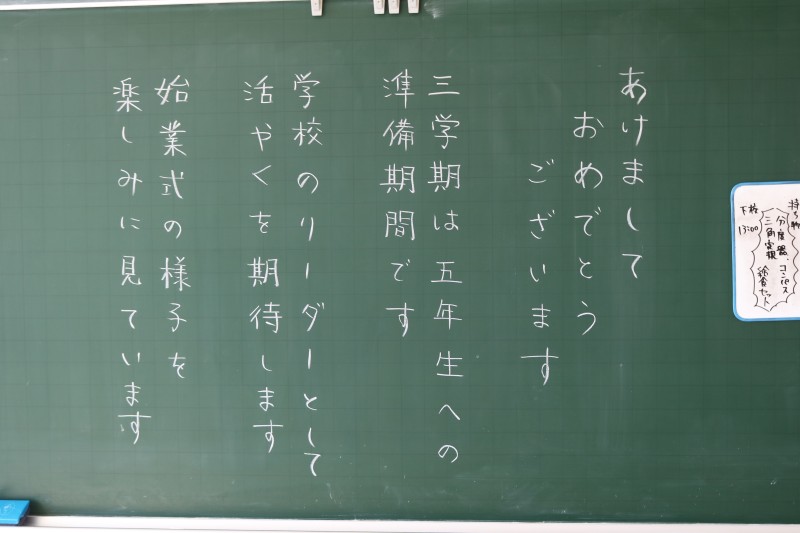 あけまして
おめでとう
ございます
三学期は五年生への
準備期間です
学校のリーダーとして
活やくを期待します
始業式の様子を
楽しみに見ています
持ち物
分度器、コンパス
三角定規
給食セット
下校
13:00